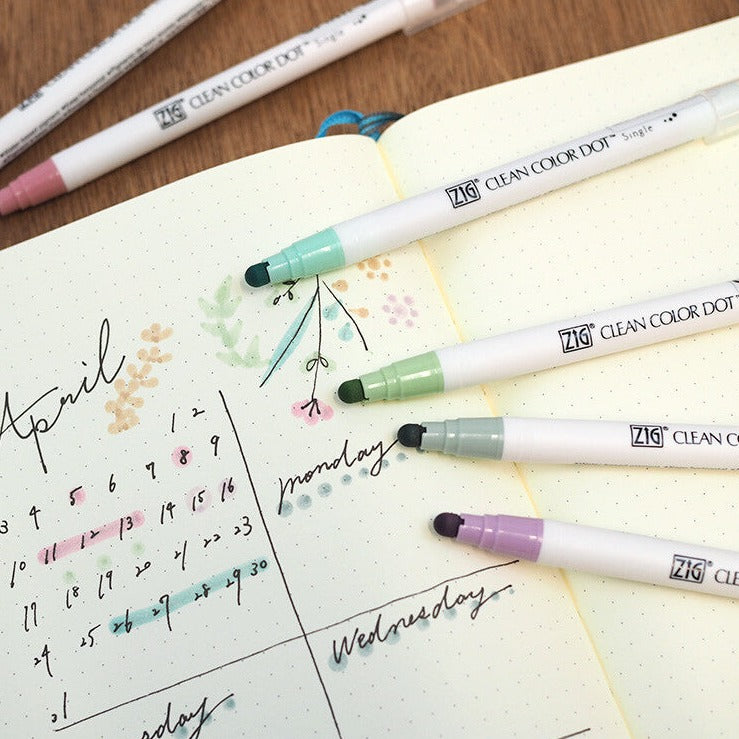 ZIG® CLEAN COLOR DOT™ Single
ZIG® CLEAN COLOR DOT™ Single
ZIG® CLEAN COLOR DOT™
ZIG® CLEAN CO
ZIG® CLE
April
1 2
3 4 5 6 7 8 9
10 11 12 13 14 15 16
17 18 19 20 21 22 23
24 25 26 27 28 29 30
31
monday
Wednesday
sday